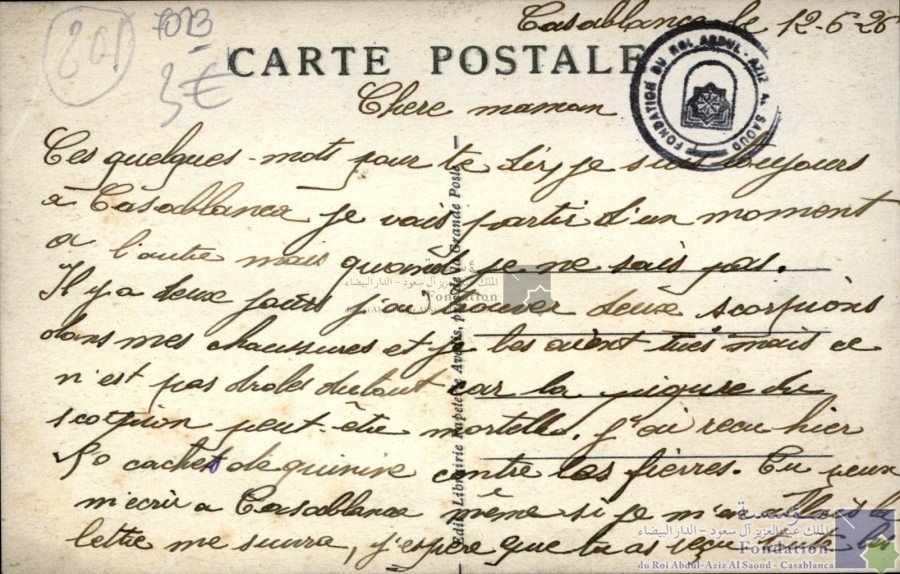 801
7013
3€
Casablanca le 12-6-26
CARTE POSTALE
FONDATION DU ROI ABDUL-AZIZ AL SAOUD
Chere maman
Ces quelques-mots pour te dire je suis toujours
a Casablanca je vais partir d'un moment
a l'autre mais quand je ne sais pas.
Il y a deux jours j'ai trouver deux scorpions
dans mes chaussures et je les aient tués mais ce
n'est pas droles du tout car la piqure du
scorpion peut-être mortelle. J'ai recu hier
cachets de quinine contre les fièvres. Tu peux
m'ecrire a Casablanca même si je m'en
lettre me suivra, j'espère que tu as reçu
Edit. Librairie Papeterie près de la Grande Poste
الملك عبد العزيز آل سعود - الدار البيضاء
Fondation
du Roi Abdul-Aziz Al Saoud - Casablanca
مؤسسة
الملك عبد العزيز آل سعود - الدار البيضاء
Fondation
du Roi Abdul-Aziz Al Saoud - Casablanca